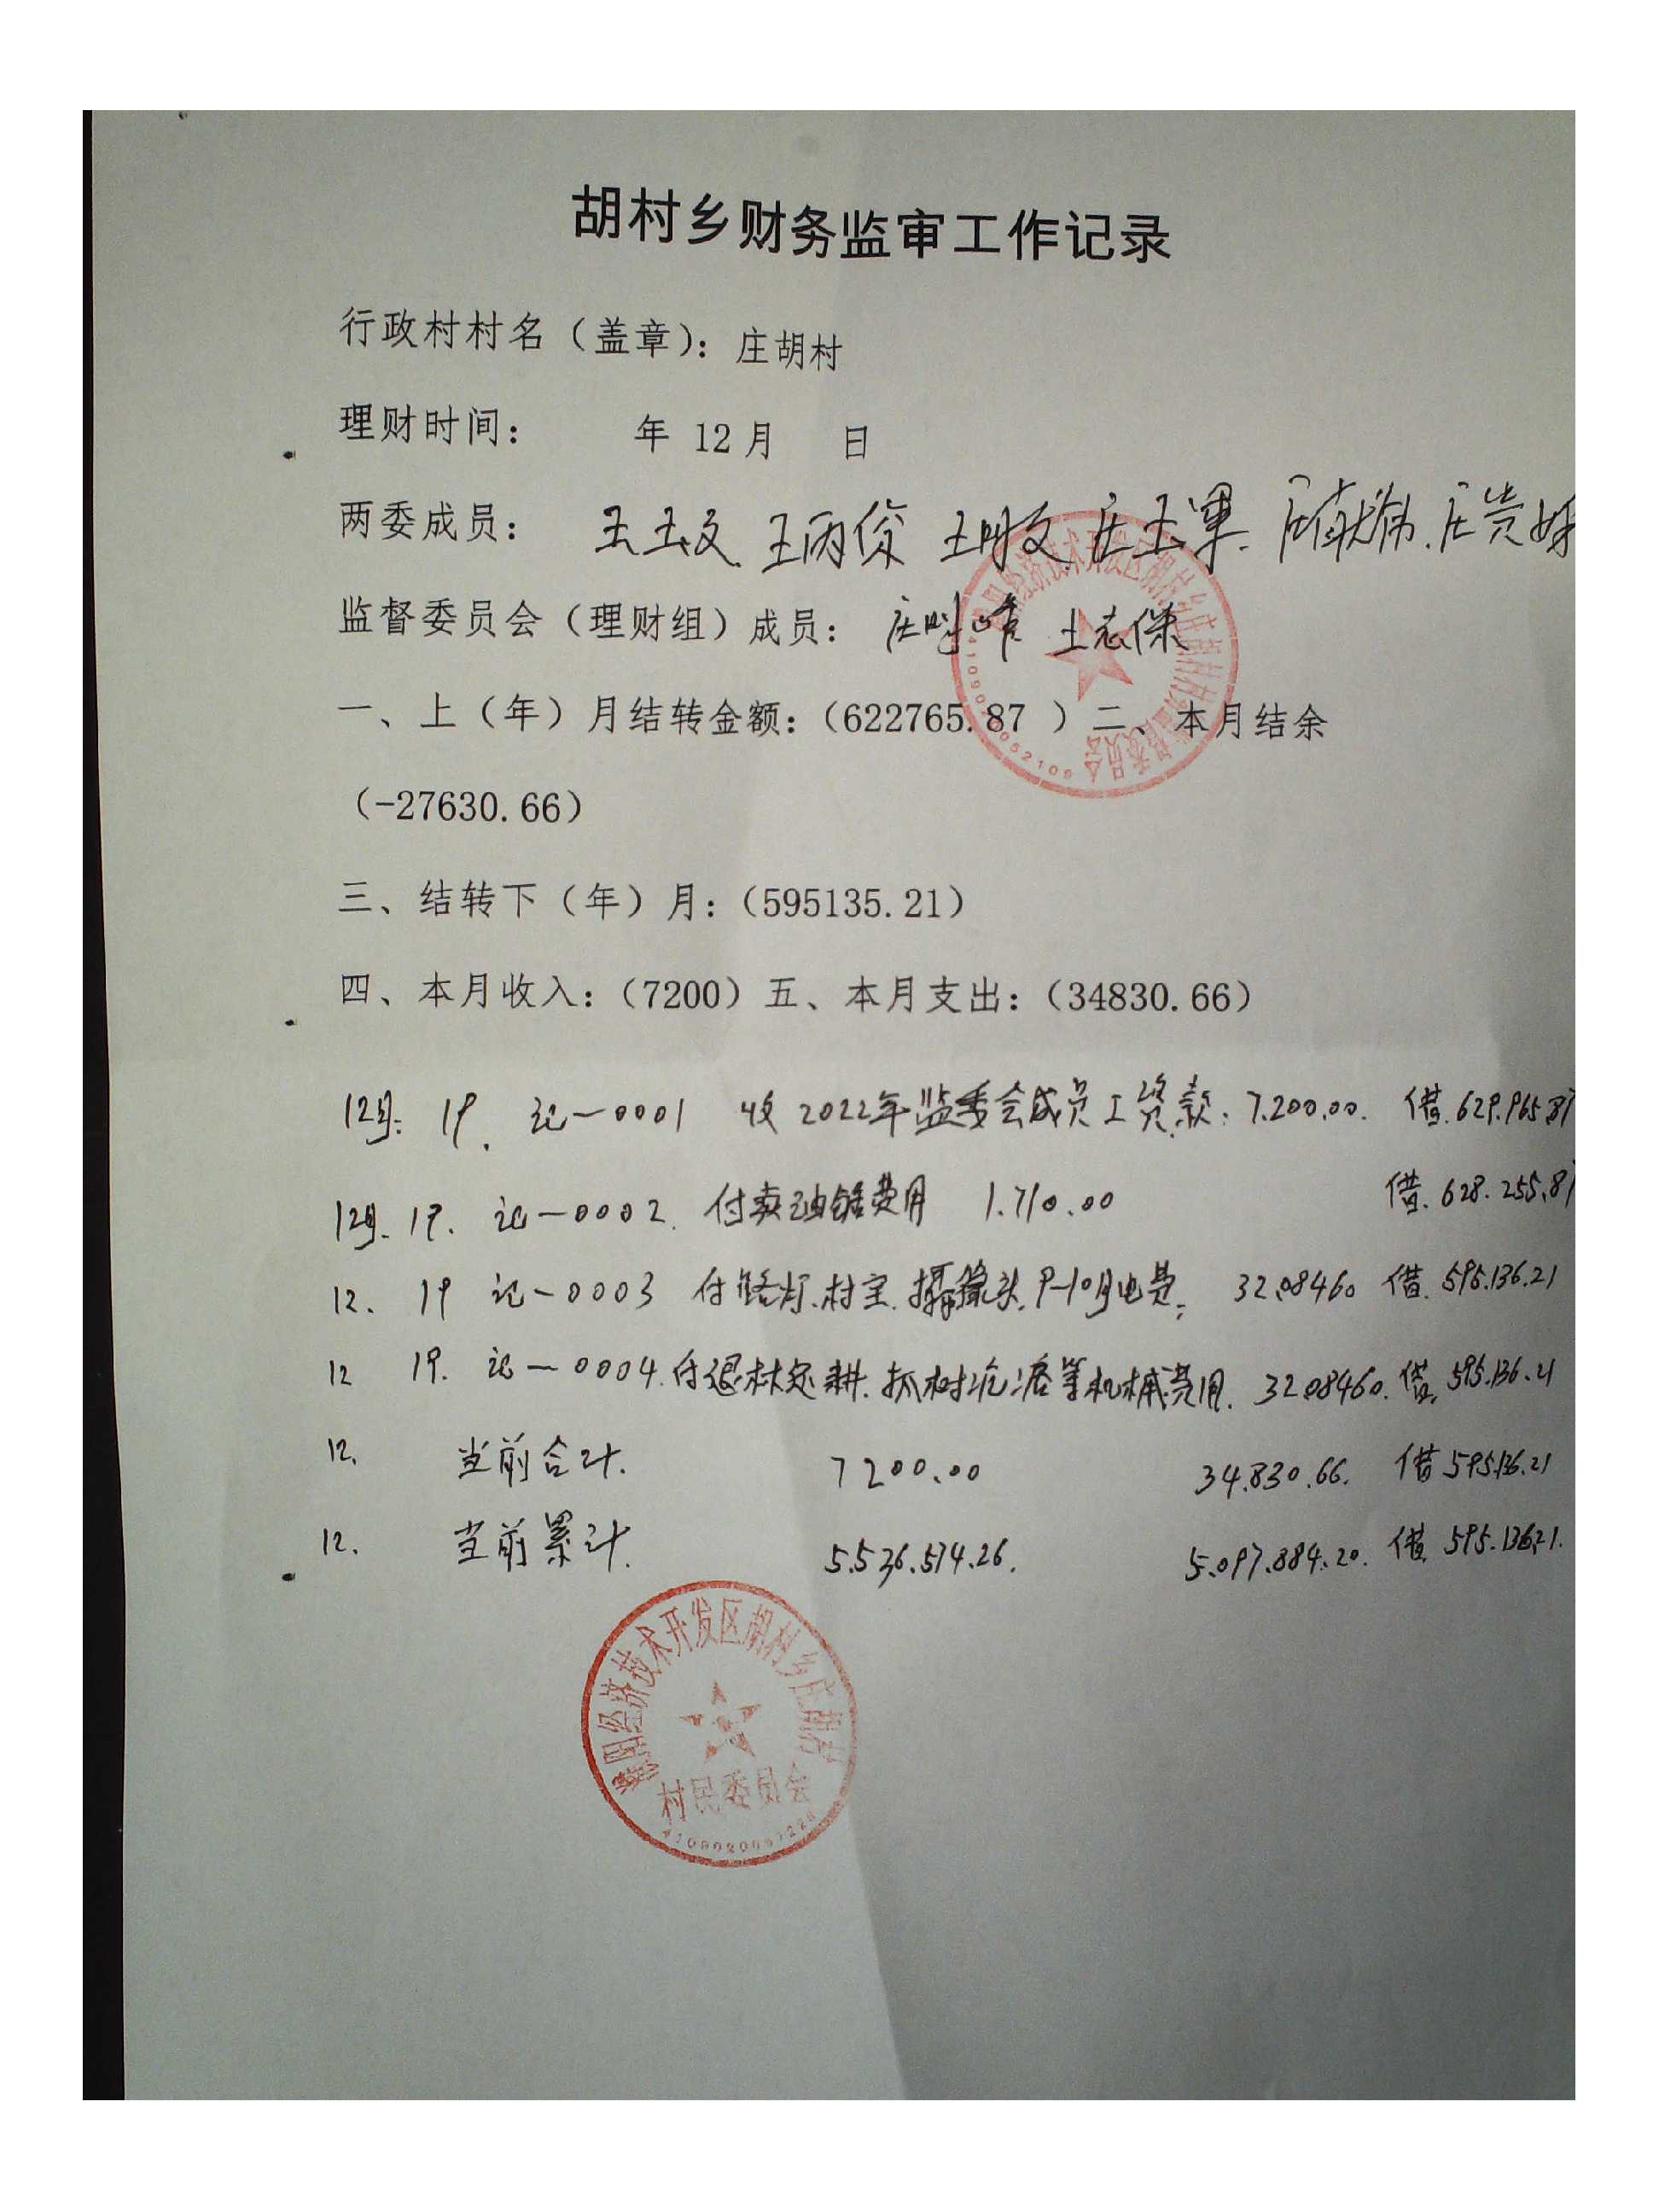 胡村乡财务监审工作记录
行政村村名（盖章）：庄胡村
理财时间： 年 12月 日
两委成员： 王玉文 王丙俊 王明文 庄玉军 庄献伟 庄贵
监督委员会（理财组）成员： 庄 王志保
一、上（年）月结转金额：（622765.87 ）二、本月结余
（-27630.66）
三、结转下（年）月：（595135.21）
四、本月收入：（7200）五、本月支出：（34830.66）
12月. 19. 记-0001 收2022年监委会成员工资款: 7.200.00. 借.629.965.87
12月. 19. 记-0002. 付卖油锯费用 1.710.00 借. 628.255.87
12. 19 记-0003 付路灯.村室.摄像头.9-10月电费. 32.084.60 借.595.136.21
12 19. 记-0004.付退林还耕.抓树 等机械费用. 32.084.60. 借.595.136.21
12. 当前合计. 7200.00 34.830.66. 借595.136.21
12. 当前累计. 5.536.574.26. 5.097.884.20. 借.595.136.21.
濮阳经济技术开发区胡村乡庄胡村
村民委员会